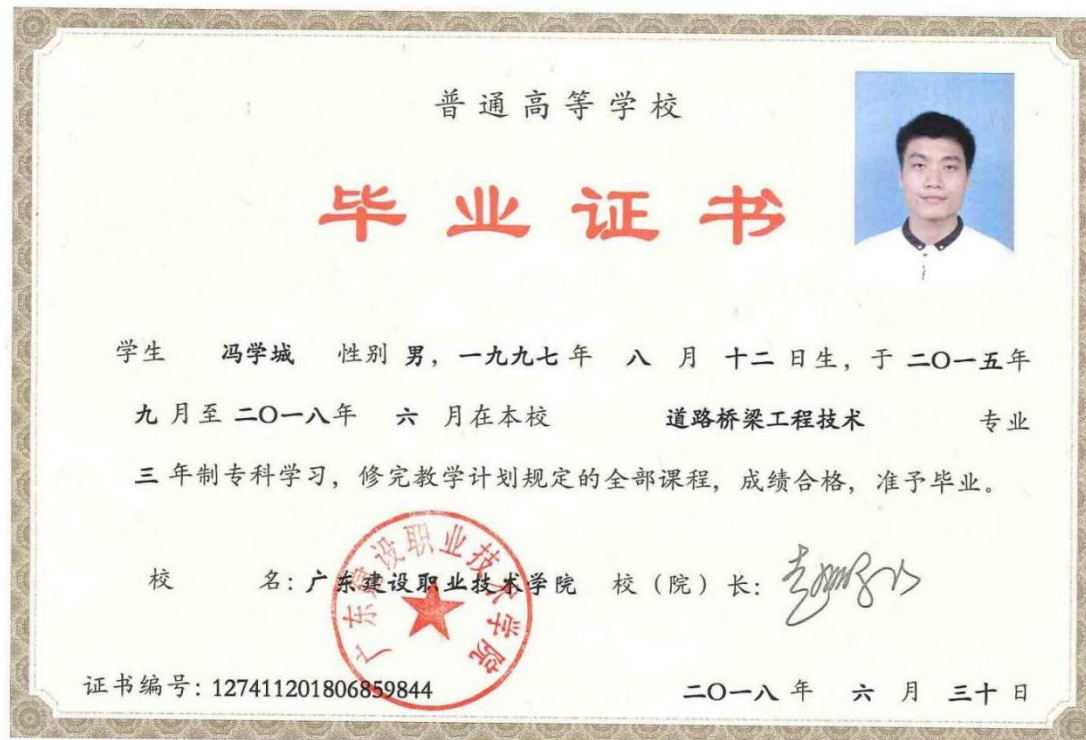 普通高等学校
毕业证书
学生 冯学城 性别 男，一九九七 年 八 月 十二 日生，于 二〇一五年
九 月至 二〇一八年 六 月在本校 道路桥梁工程技术 专业
三 年制专科学习，修完教学计划规定的全部课程，成绩合格，准予毕业。
校 名：广东建设职业技术学院 校（院）长：
广东建设职业技术学院
证书编号：127411201806859844 二〇一八 年 六 月 三十 日